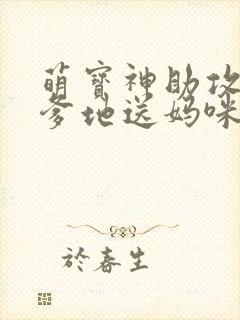 萌寶神助攻
爹地送媽咪
於春生